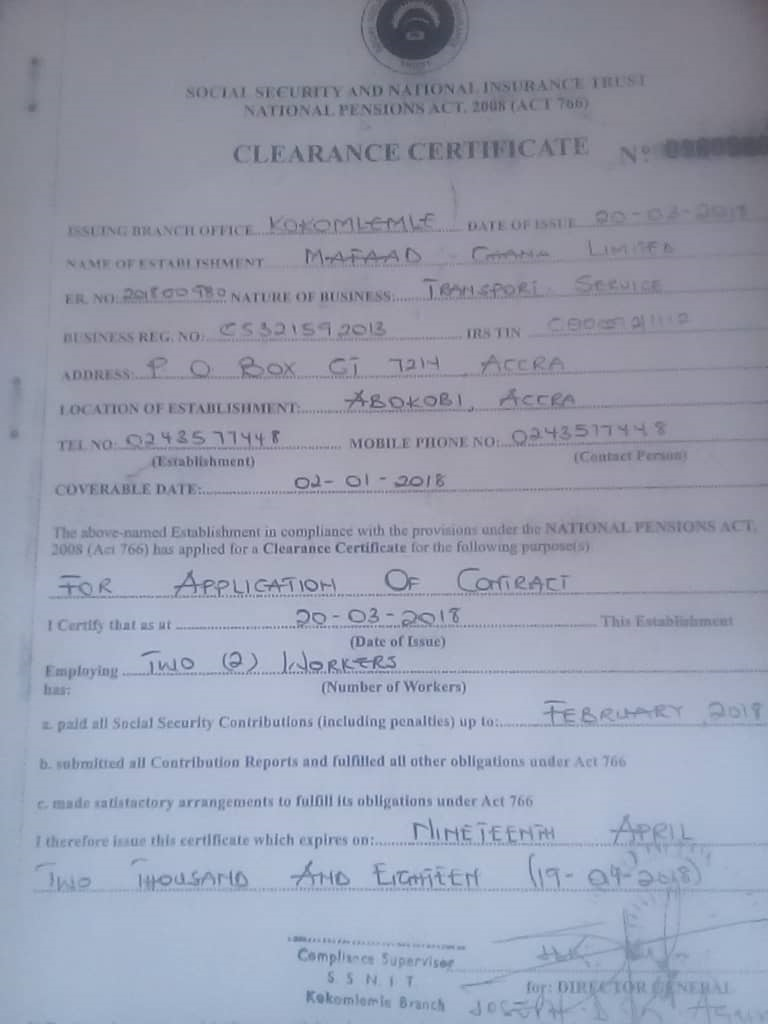 SOCIAL SECURITY AND NATIONAL INSURANCE TRUST
NATIONAL PENSIONS ACT, 2008 (ACT 766)
CLEARANCE CERTIFICATE Nº
ISSUING BRANCH OFFICE KOKOMLEMLE DATE OF ISSUE 20-03-2018
NAME OF ESTABLISHMENT MAFAAD GHANA LIMITED
ER. NO: 201800980 NATURE OF BUSINESS: TRANSPORT SERVICE
BUSINESS REG. NO: CS321592013 IRS TIN
ADDRESS: P O BOX GT 7214 ACCRA
LOCATION OF ESTABLISHMENT: ABOKOBI, ACCRA
TEL NO: 0243577448 MOBILE PHONE NO: 0243577448
(Establishment) (Contact Person)
COVERABLE DATE: 02-01-2018
The above-named Establishment in compliance with the provisions under the NATIONAL PENSIONS ACT,
2008 (Act 766) has applied for a Clearance Certificate for the following purpose(s)
FOR APPLICATION OF CONTRACT
I Certify that as at 20-03-2018 This Establishment
(Date of Issue)
Employing TWO (2) WORKERS
has: (Number of Workers)
a. paid all Social Security Contributions (including penalties) up to: FEBRUARY, 2018
b. submitted all Contribution Reports and fulfilled all other obligations under Act 766
c. made satisfactory arrangements to fulfill its obligations under Act 766
I therefore issue this certificate which expires on: NINETEENTH APRIL
TWO THOUSAND AND EIGHTEEN (19-04-2018)
Compliance Supervisor
S. S. N. I. T.
for: DIRECTOR GENERAL
Kokomlemle Branch JOSEPH